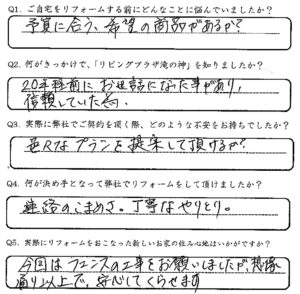 Q1. ご自宅をリフォームする前にどんなことに悩んでいましたか？
予算に合う、希望の商品があるか？
Q2. 何がきっかけで、「リビングプラザ滝の神」を知りましたか？
20年程前にお世話になった事があり、
信頼していた為。
Q3. 実際に弊社でご契約を頂く際、どのような不安をお持ちでしたか？
色々なプランを提案して頂けるか？
Q4. 何が決め手となって弊社でリフォームをして頂けましたか？
連絡のこまめさ。丁寧なやりとり。
Q5. 実際にリフォームをおこなった新しいお家の住み心地はいかがですか？
今回はフェンスの工事をお願いしましたが、想像
通り以上で、安心してくらせます